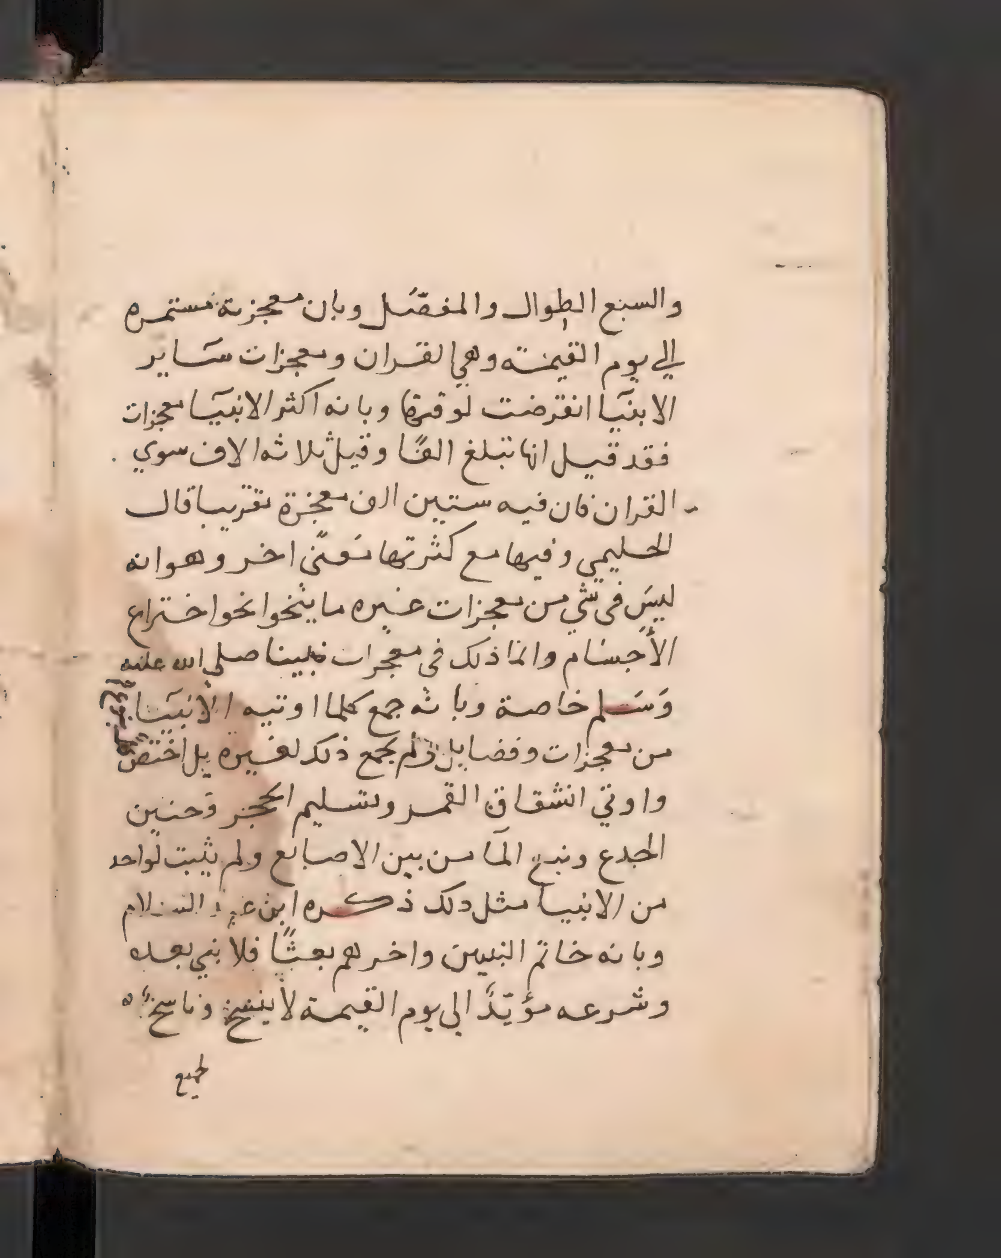 والسبع الطوال والمفصّل وبان معجزته مستمره
الي يوم القيمته وهي القران ومعجزات سَاير
الانبيَا انقرضت لوقتها وبانه اكثر الانبيَا معجزات
فقد قيل انها تبلغ الفًا وقيل ثلاثه الاف سوي
القران فان فيه ستين الف معجزة تقريبا قال
الحليمي وفيها مع كثرتها مَعنًى اخر وهو انه
ليسَ في شي من معجزات غيره ما ينحوا نحوا ختراع
الأجسَام وانما ذلك في معجزات نبينا صلي الله عليه
وَسَلم خاصة وبانه جمع كلما اوتيه الانبيَا
من معجزات وفضايل ولم يجمع ذلك لغيره بل اختص
واوتي انشقاق القمر وتسليم الحجر وَحنين
الجدع ونبع المآ من بين الاصابع ولم يثبت لواحد
من الانبيا مثل دلك ذكره ابن عبد السلام
وبانه خاتم النبيين واخرهم بعثًا فلا نبي بعده
وشرعه مؤبّدً الي يوم القيمة لا ينسخ وناسخ
لجميع